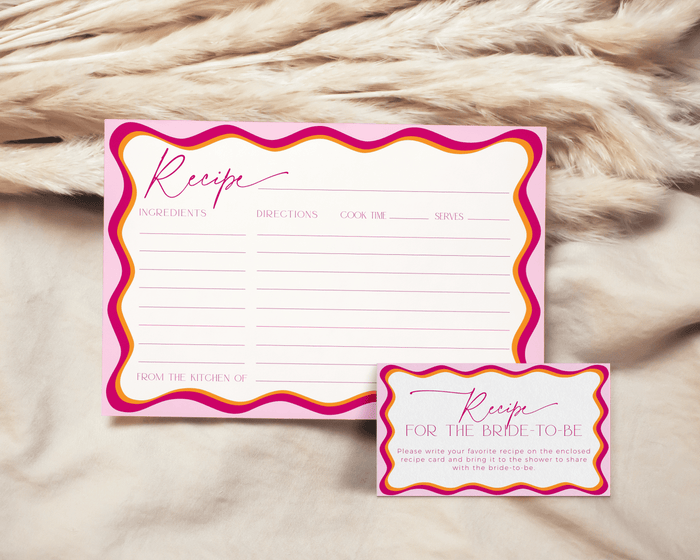 Recipe
INGREDIENTS DIRECTIONS COOK TIME SERVES
FROM THE KITCHEN OF
Recipe
FOR THE BRIDE-TO-BE
Please write your favorite recipe on the enclosed
recipe card and bring it to the shower to share
with the bride-to-be.